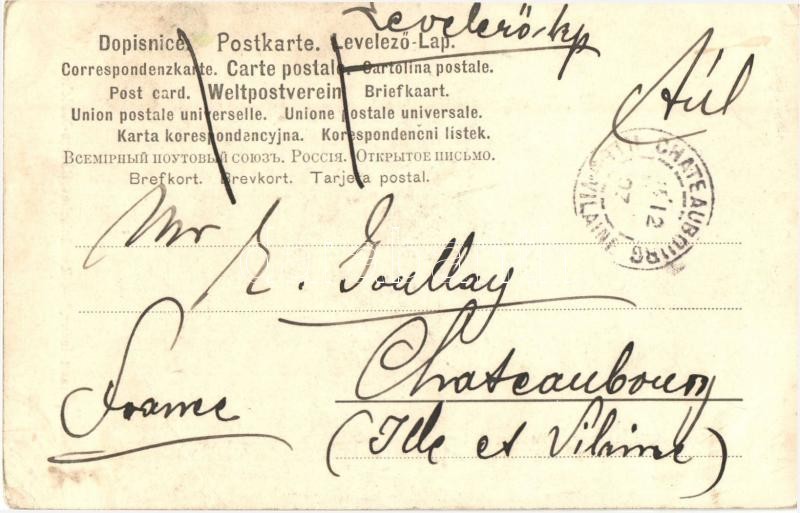 Levelező-lap
Dopisnice. Postkarte. Levelező-Lap.
Correspondenzkarte. Carte postale. Cartolina postale.
Post card. Weltpostverein. Briefkaart.
Union postale universelle. Unione postale universale.
Karta korespondencyjna. Korespondenční lístek.
Всемірный поутовый союзъ. Россія. Открытое письмо.
Brefkort. Brevkort. Tarjeta postal.
CHATEAUBOURG
12
07
Mr
E. Goullay
Chateaubourg
France
(Ille et Vilaine)